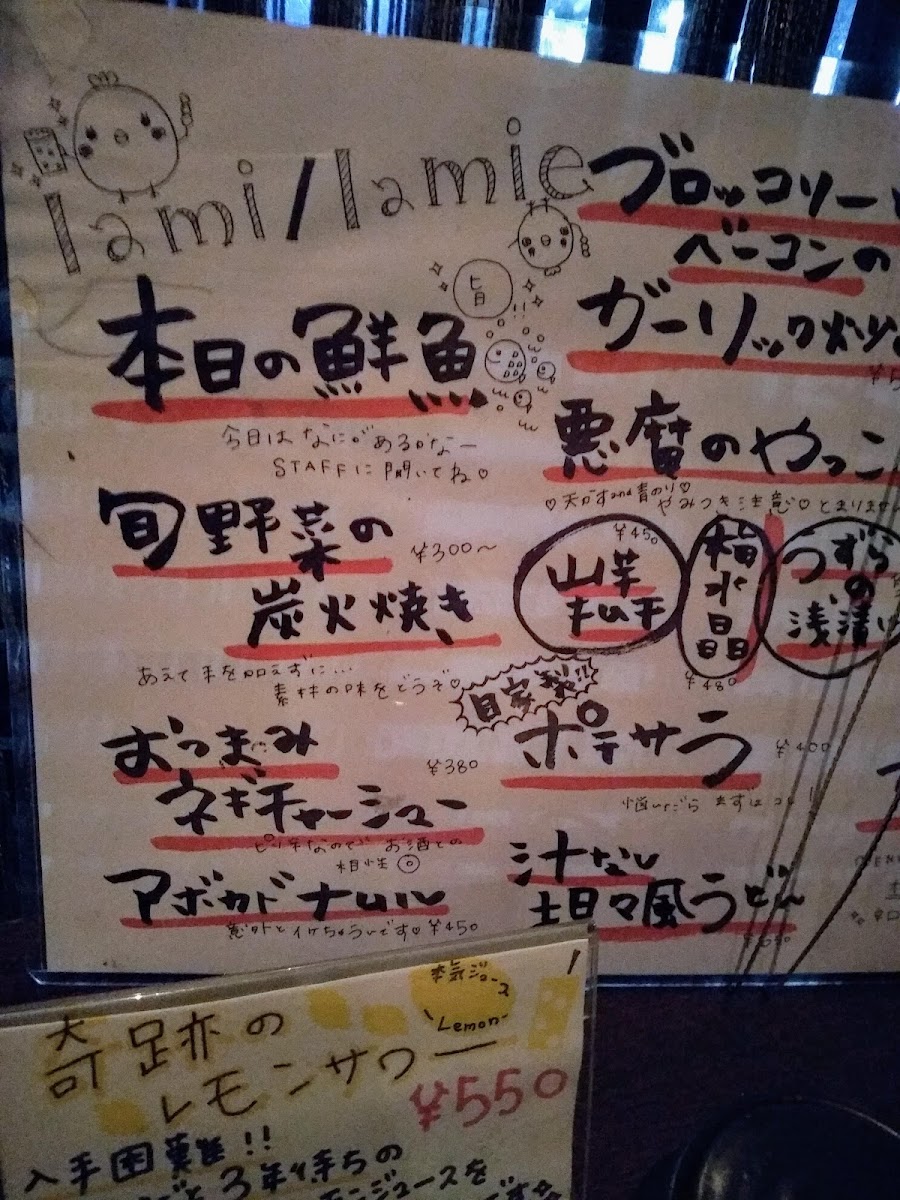 lami/lamie
旨!!
本日の鮮魚
今日はなにがあるかなー
STAFFに聞いてね♡
旬野菜の
¥300〜
炭火焼き
あえて手を加えずに…
素材の味をどうぞ♡
おつまみ
¥380
ネギチャーシュー
ピリ辛なので お酒との
相性◎
アボカドナムル
意外とイケちゃうんです♡ ¥450
ブロッコリー
ベーコンの
ガーリック炒め
悪魔のやっこ
♡天かすand青のり♡
やみつき注意♡とまりません
¥450
山芋
キムチ
梅水晶
¥480
うずら
の
浅漬け
自家製!!
ポテサラ
¥400
悩んだら まずはコレ!
汁なし
坦々風うどん
本気ジュース
Lemon
奇跡の
レモンサワー
¥550
入手困難!!
3年待ちの
ジュースを